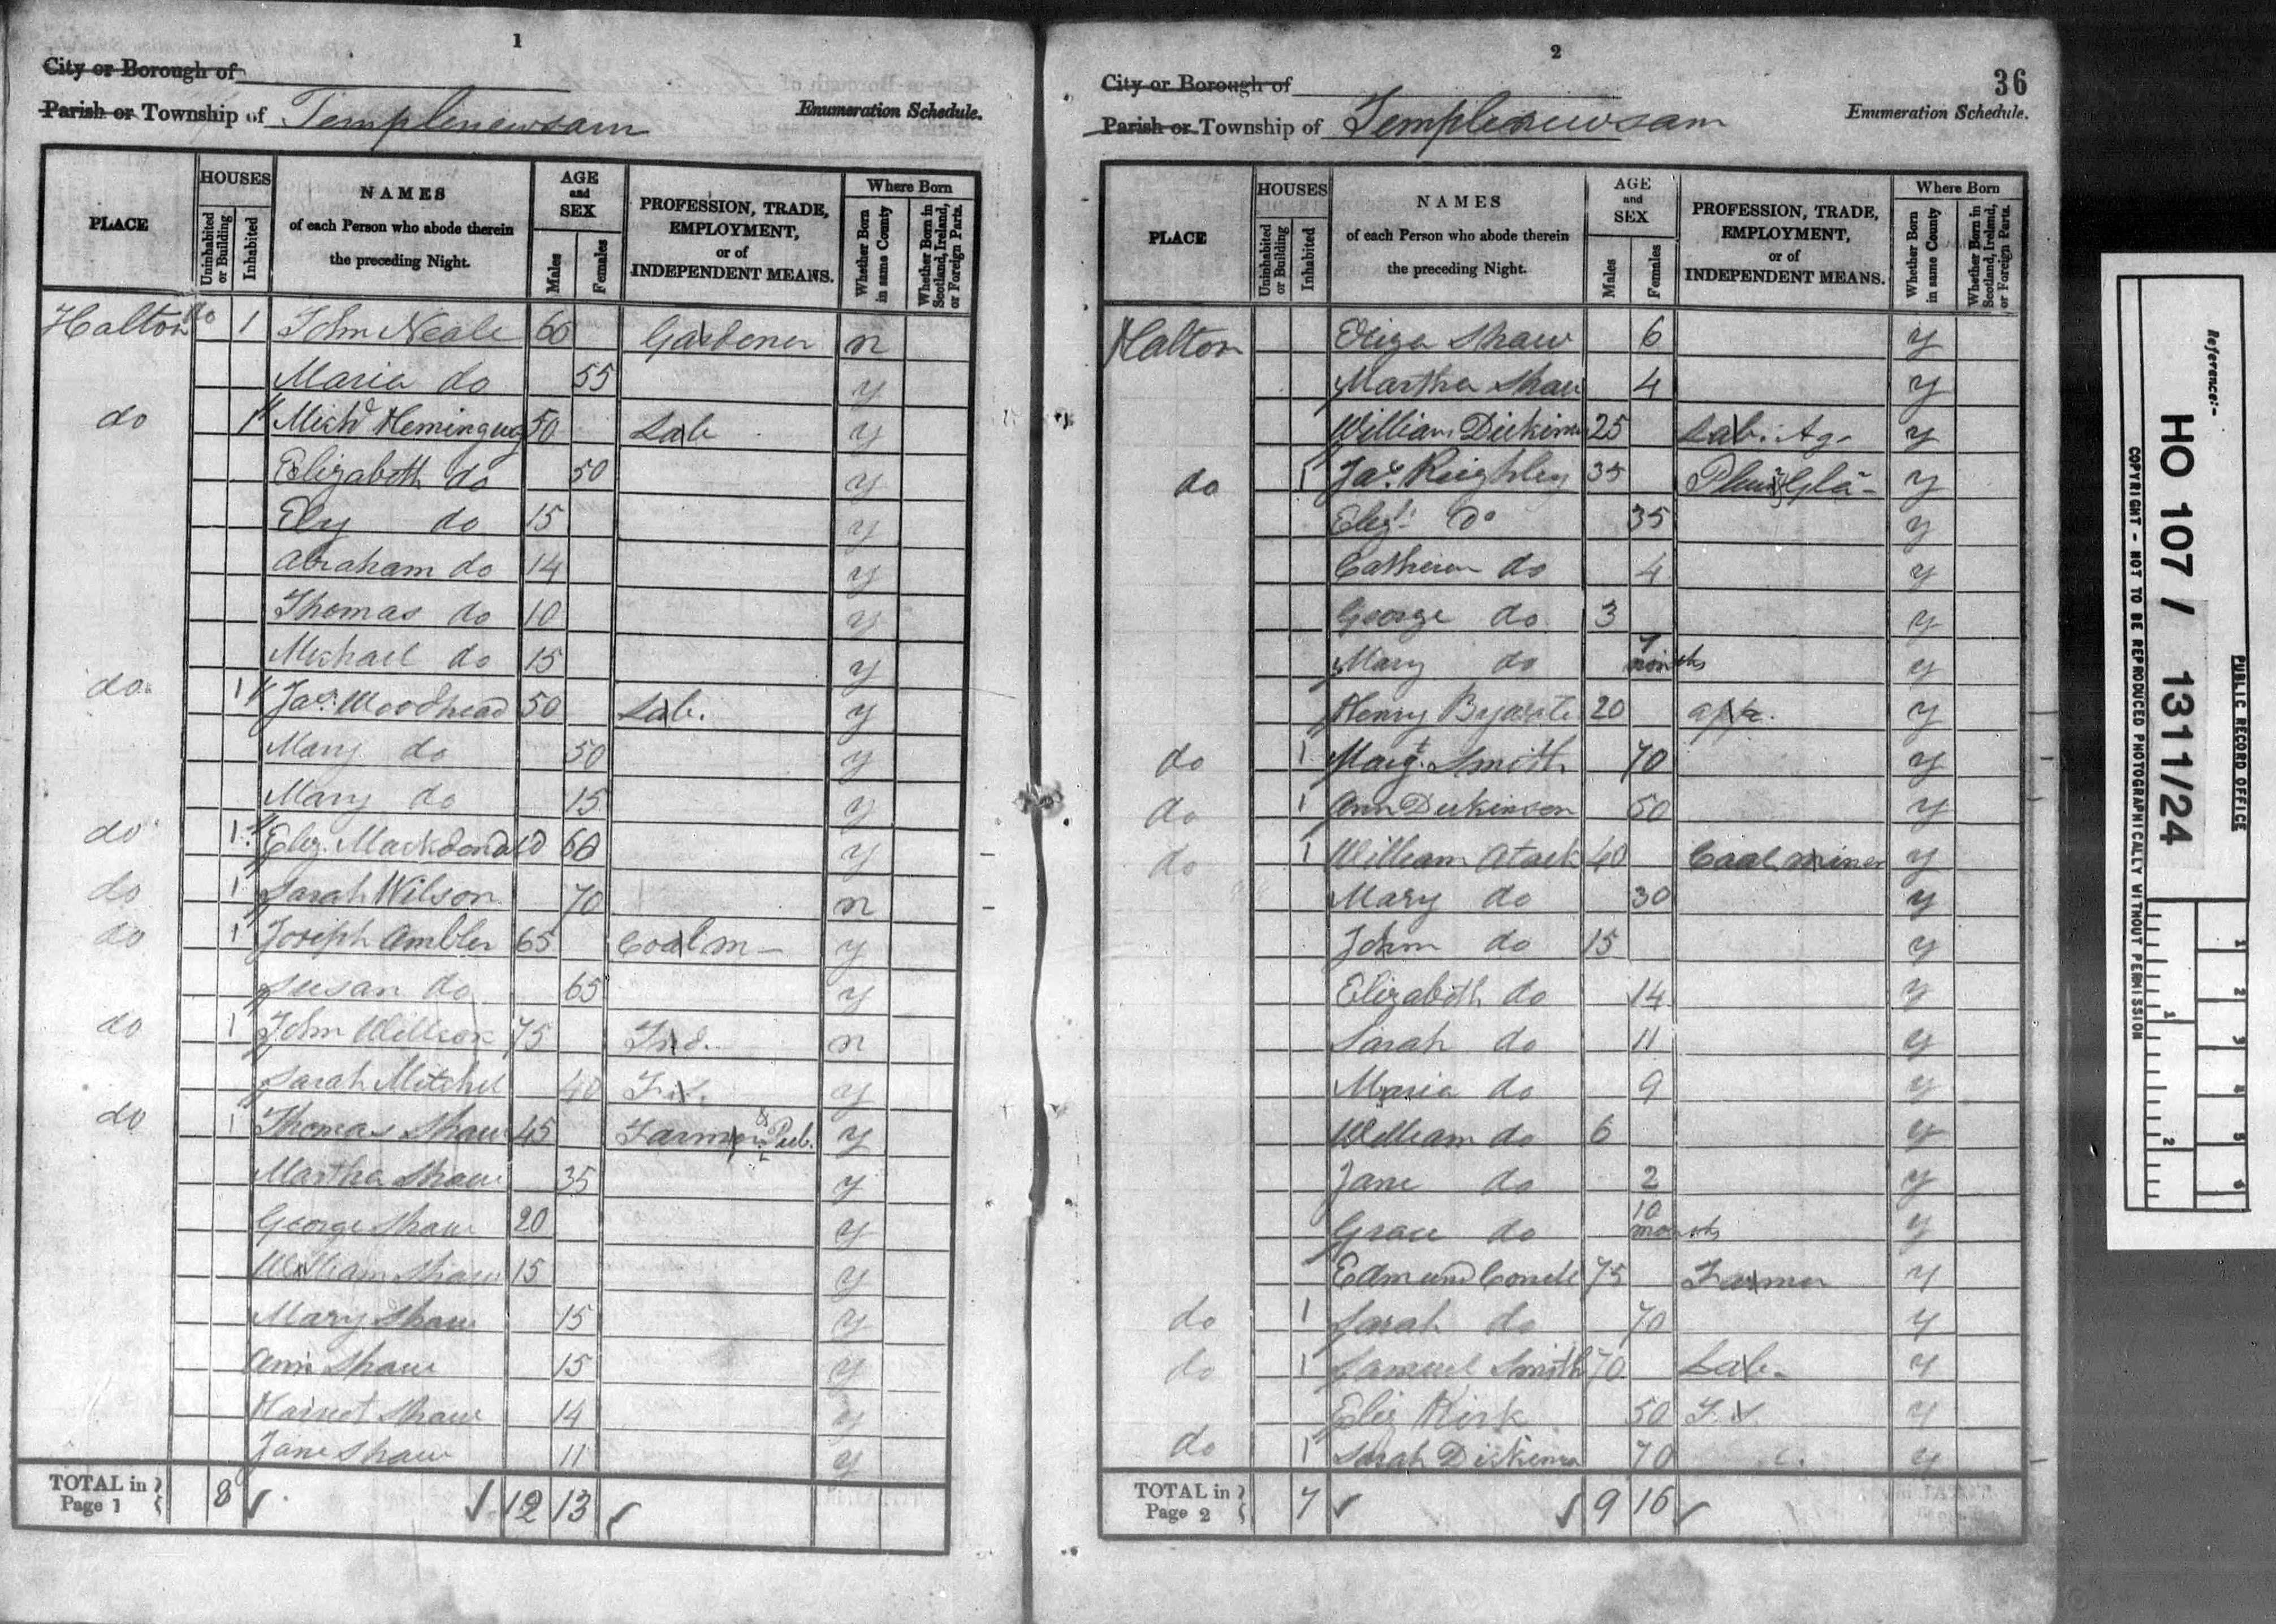 1
City or Borough of
Parish or Township of Templenewsam Enumeration Schedule.
PLACE HOUSES NAMES of each Person who abode therein the preceding Night. AGE and SEX PROFESSION, TRADE, EMPLOYMENT, or of INDEPENDENT MEANS. Where Born
Uninhabited or Building Inhabited Males Females Whether Born in same County Whether Born in Scotland, Ireland, or Foreign Parts.
Halton 1 John Neale 60 Gardener n
Maria do 55 y
do 1 Mich Hemingway 50 Lab y
Elizabeth do 50 y
Ely do 15 y
Abraham do 14 y
Thomas do 10 y
Michael do 15 y
do 1 Jas. Woodhead 50 Lab. y
Mary do 50 y
Mary do 15 y
do 1 Eliz. Mackdonald 60 y
do 1 Sarah Wilson 70 n
do 1 Joseph Ambler 65 Coal m- y
Susan do 65 y
do 1 John 75 Ind. n
Sarah Mitchel 40 F.S. y
do 1 Thomas Shaw 45 Farmer & Pub. y
Martha Shaw 35 y
George Shaw 20 y
William Shaw 15 y
Mary Shaw 15 y
Ann Shaw 15 y
Harriot Shaw 14 y
Jane Shaw 11 y
TOTAL in Page 1 8 12 13
2
36
City or Borough of
Parish or Township of Templenewsam Enumeration Schedule.
PLACE HOUSES NAMES of each Person who abode therein the preceding Night. AGE and SEX PROFESSION, TRADE, EMPLOYMENT, or of INDEPENDENT MEANS. Where Born
Uninhabited or Building Inhabited Males Females Whether Born in same County Whether Born in Scotland, Ireland, or Foreign Parts.
Halton Eliza Shaw 6 y
Martha Shaw 4 y
William Dickinson 25 Lab. Ag. y
do 1 Jas. Keighley 35 Plum & Gla- y
Eliz. Do 35 y
Catherin do 4 y
George do 3 y
Mary do 7 months y
Henry 20 app. y
do 1 Margt. Smith 70 y
do 1 Ann Dickinson 50 y
do 1 William Atack 40 Coal miner y
Mary do 30 y
John do 15 y
Elizabeth do 14 y
Sarah do 11 y
Maria do 9 y
William do 6 y
Jane do 2 y
Grace do 10 months y
Edmund 75 Farmer y
do 1 Sarah do 70 y
do 1 Samuel Smith 70 Lab. y
Eliz Kirk 50 F.S y
do 1 Sarah Dickinson 70 y
TOTAL in Page 2 7 9 16
Reference:-
HO 107 / 1311/24
PUBLIC RECORD OFFICE
COPYRIGHT - NOT TO BE REPRODUCED PHOTOGRAPHICALLY WITHOUT PERMISSION
1 2 3 4 5 6
1 2